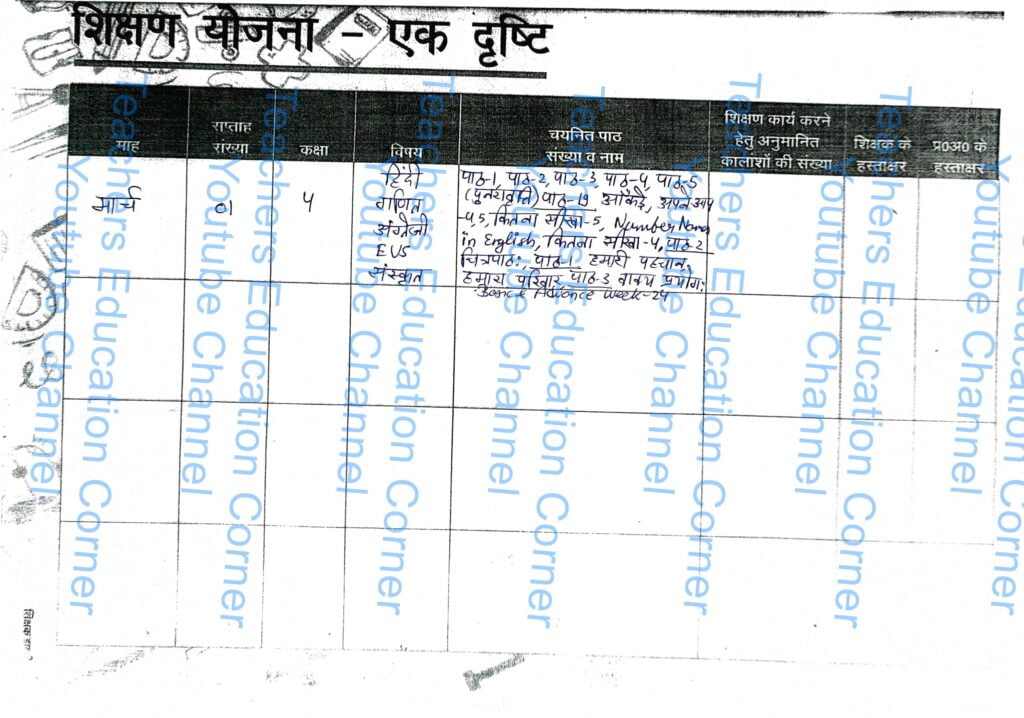 शिक्षण योजना - एक दृष्टि
माह
सप्ताह
संख्या
कक्षा
विषय
चयनित पाठ
संख्या व नाम
शिक्षण कार्य करने
हेतु अनुमानित
कालांशों की संख्या
शिक्षक के
हस्ताक्षर
प्र०अ० के
हस्ताक्षर
मार्च
01
4
हिंदी
गणित
अंग्रेजी
EVS
संस्कृत
पाठ-1, पाठ-2, पाठ-3, पाठ-4, पाठ-5
(पुनरावृत्ति) पाठ-19 आँकड़े, अपने आप
-4,5, कितना सीखा-5, Number Name
in English, कितना सीखा-4, पाठ-2
चित्रपाठ:, पाठ-1 हमारी पहचान,
हमारा परिवार पाठ-3 वाक्य प्रयोग:
week-24
Teachers Education Corner
Youtube Channel
Teachers Education Corner
Youtube Channel
Teachers Education Corner
Youtube Channel
Teachers Education Corner
Youtube Channel
Teachers Education Corner
Youtube Channel
Teachers Education Corner
Youtube Channel